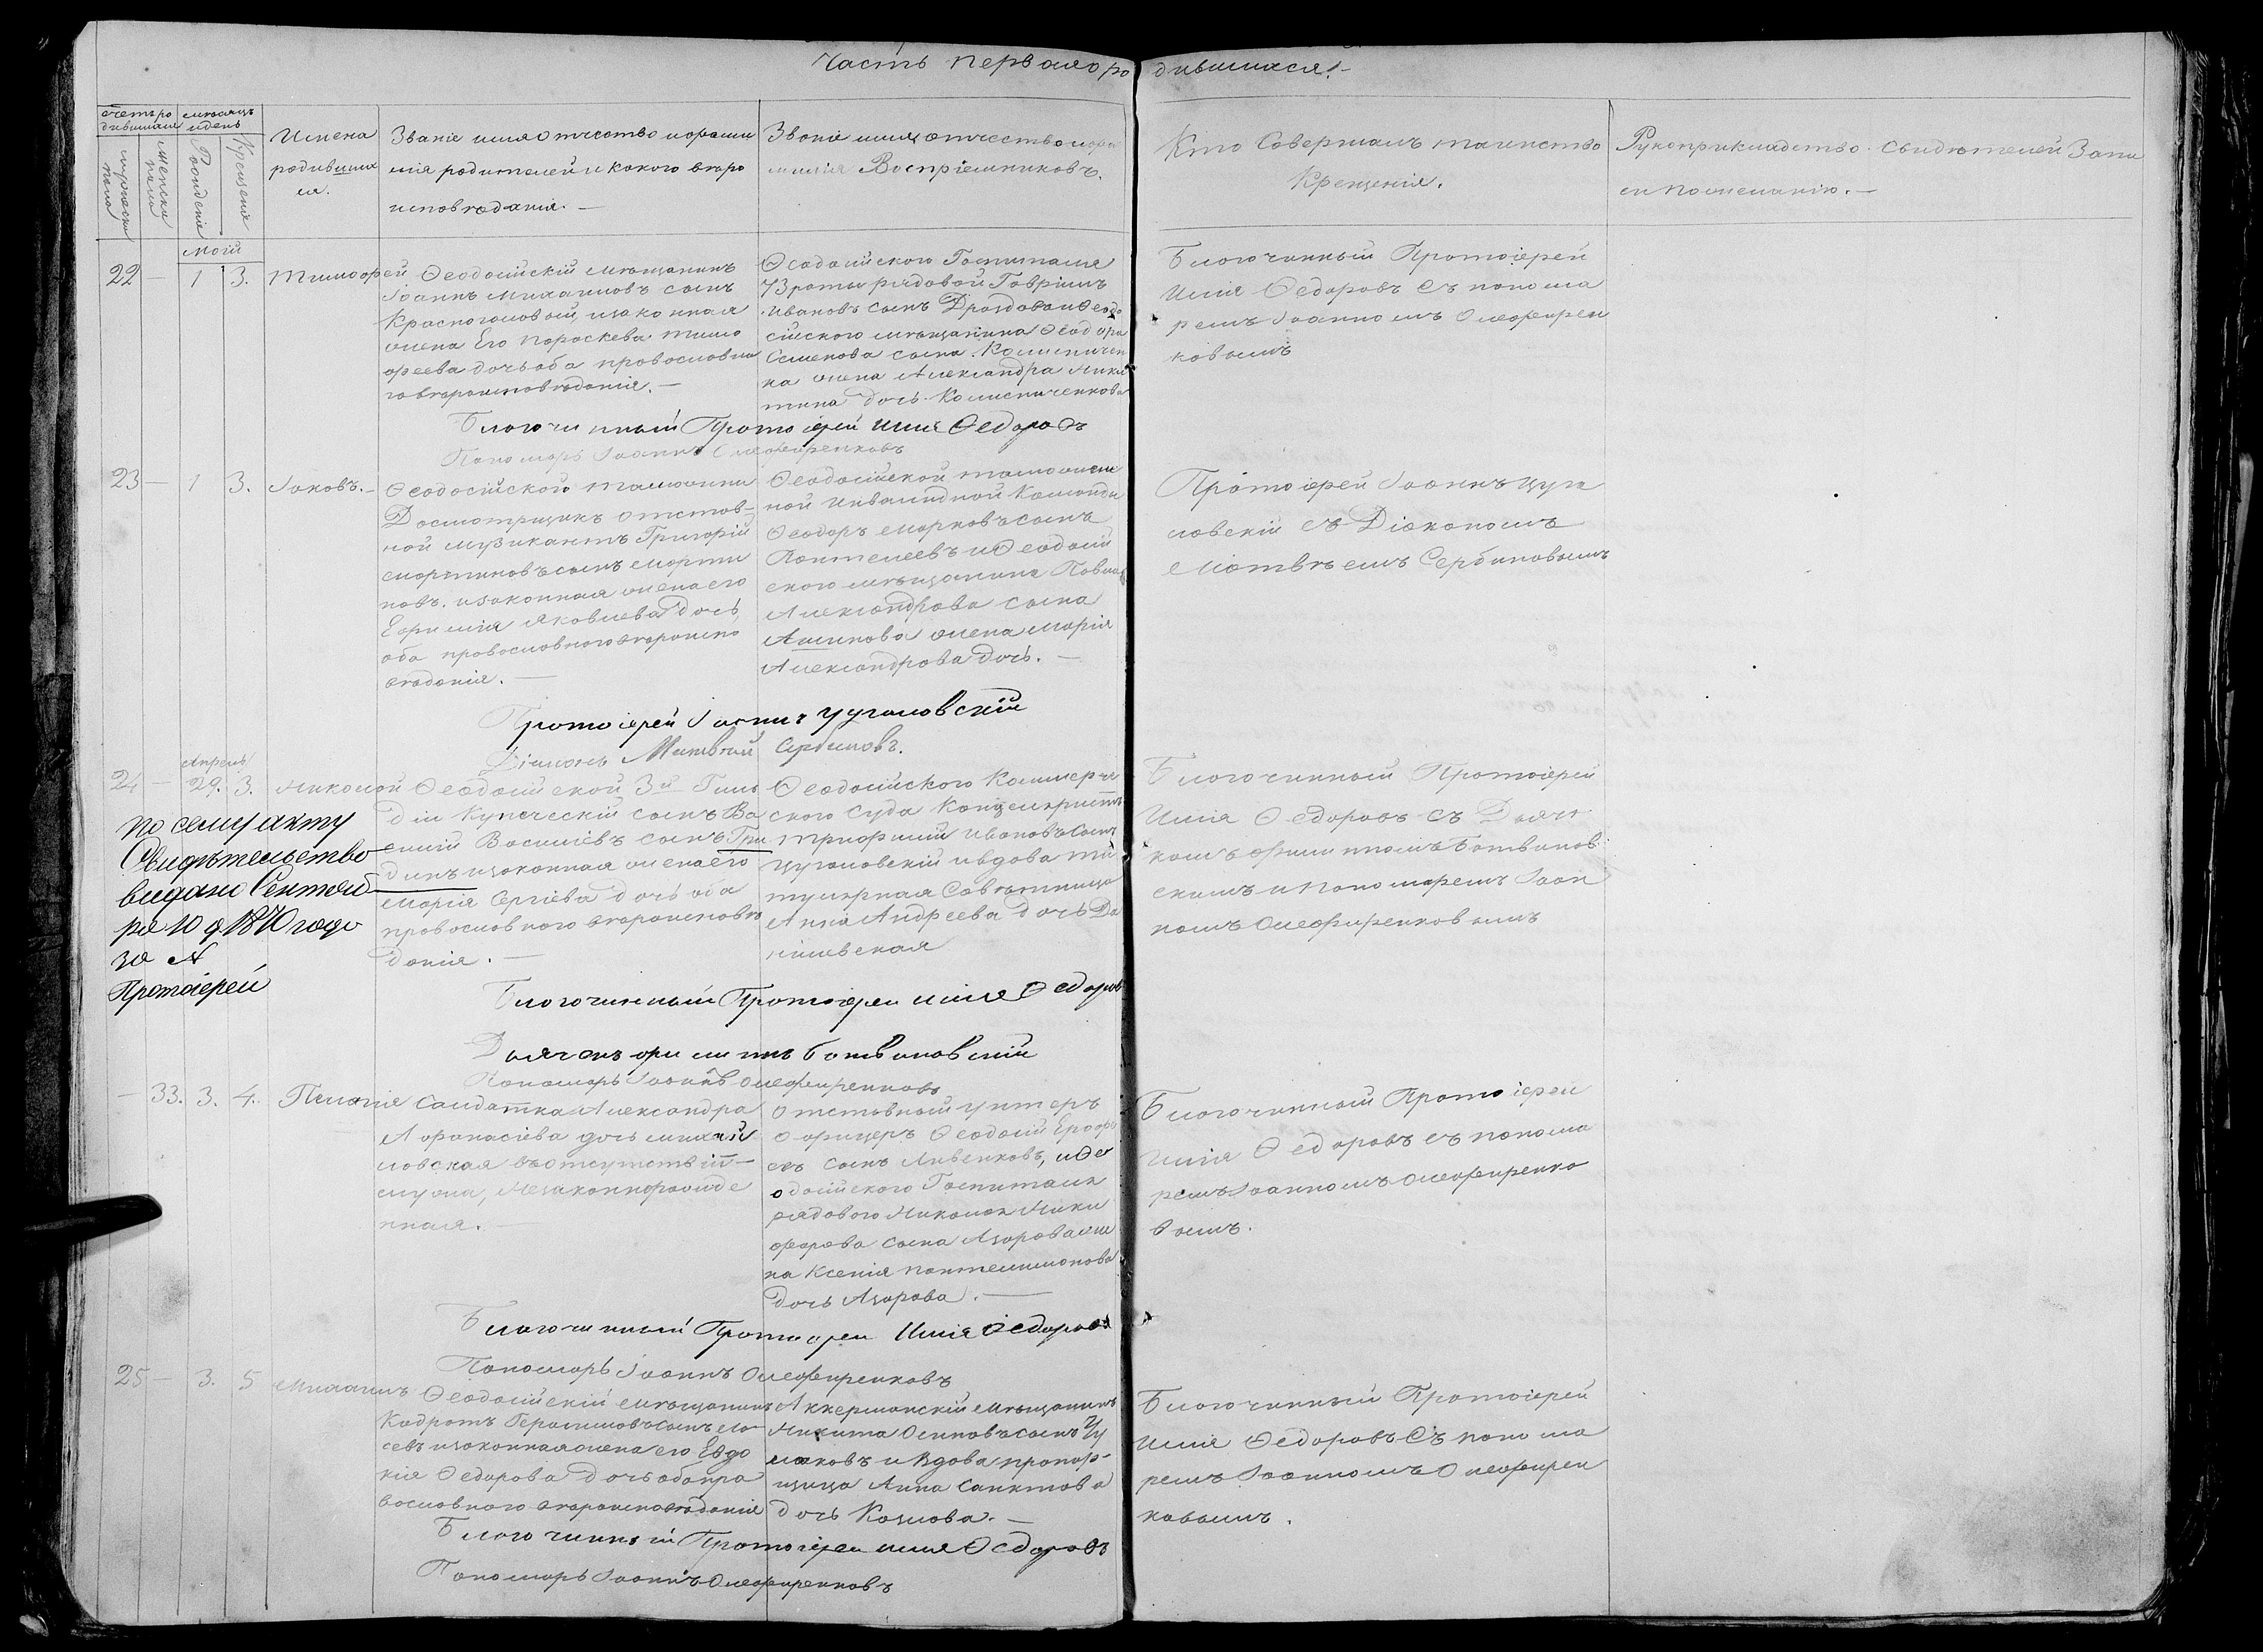 Часть первая о ро дившихся.
Счетъ ро
дившихся
мѣсяцъ
и день
мужеска
пола
женска
пола
Рожденія
Крещенія
Имена
родивших
ся.
Званіе имя отчество и фами
лія родителей и какого вѣро
исповѣданія. —
Званіе имя отчество и фа
милія Воспріемниковъ.
Кто Совершалъ таинство
Крещенія.
Рукоприкладство свидѣтелей Запи
си по желанію. —
Маій
22 — 1 3. Тимофей
Ѳеодосійскій мѣщанинъ
Іоаннъ Михаиловъ сынъ
Красноголовый, и законная
жена Его Пораскева Тимо
феева дочь оба провославна
го вѣроисповѣданія. —
Ѳеодосійского Госпиталя
73 роты рядовой Гавріилъ
Ивановъ сынъ Дроздовъ и Ѳеодо
сійского мѣщанина Ѳеодора
Семенова сына Колисничен
ка жена Александра Ники
тина дочь Колисниченкова
Благочинный Протоіерей
Илія Ѳедоровъ Съ понома
ремъ Іоанномъ Олефирен
ковымъ
Благочинный Протоіерей Илія Ѳедоровъ
Пономарь Іоаннъ Олефиренковъ
23 — 1 3. Іаковъ. —
Ѳеодосійского таможни
Досмотрщикъ отстав-
ной музикантъ Григорій
Мартиновъ сынъ Марти
новъ. и законная жена его
Евфимія Яковлева дочь,
оба провославного вѣроиспо
вѣданія. —
Ѳеодосійской таможен
ной инвалидной Команды
Ѳеодоръ Марковъ сынъ
Пантелеевъ и Ѳеодосій
ского мѣщанина Павла
Александрова сына
Ашинова жена Марія
Александрова дочь. —
Протоіерей Іоаннъ Цуга
новскій съ Діакономъ
Матвѣемъ Сербиновымъ
Протоіерей Іоаннъ Цугановскій
Діаконъ Матвѣй Сербиновъ.
Апрель
24 — 29. 3. Николай
Ѳеодосійской 3й Гиль
діи Купеческій сынъ Ва
силій Василіевъ сынъ Гри
динъ и законная жена его
Марія Сергіева дочь оба
провославного вѣроисповѣ
данія. —
Ѳеодосійского Коммерче
ского Суда Канцеляристъ
Трифилій Ивановъ сынъ
Цугановскій и вдова Ти
тулярная Совѣтница
Анна Андреева дочь Да
нилевская
Благочинный Протоіерей
Илія Ѳедоровъ съ Дьяч
комъ Филипомъ Ботвинов
скимъ и пономаремъ Іоан
номъ Олефиренковымъ
по сему акту
Свидѣтельство
видано Сентяб
ря 10 д 1870 года
за №
Протоіерей
Благочинный Протоіерей Илія Ѳедоровъ
Дьячекъ Филипъ Ботвиновскій
Пономарь Іоаннъ Олефиренковъ
— 33. 3. 4. Пелагія
Салдатка Александра
Афанасіева дочь Михай
ловская въ отсутствіи
мужа, Незаконнорожде
нная. —
Отставный унтеръ
офицеръ Ѳеодосій Ерофе
евъ сынъ Ливенковъ, и Ѳе
одосійского Госпиталя
рядового Николая Ники
форова сына Азарова же
на Ксенія Пантелимонова
дочь Азарова. —
Благочинный Протоіерей
Илія Ѳедоровъ съ понома
ремъ Іоанномъ Олефиренко
вымъ.
Благочинный Протоіерей Илія Ѳедоровъ
Пономарь Іоаннъ Олефиренковъ
25 — 3. 5 Михаилъ
Ѳеодосійскій мѣщанинъ
Кадратъ Герасимовъ сынъ Мо
севъ и законная жена его Евдо
кія Ѳедорова дочь оба пра
вославного вѣроисповѣданія
Аккерманскій мѣщанинъ
Никита Осиповъ сынъ Чу
маковъ и Вдова прапор-
щица Анна Санктова
дочь Козлова. —
Благочинный Протоіерей
Илія Ѳедоровъ Съ понома
ремъ Іоанномъ Олефирен
ковымъ.
Благочинный Протоіерей Илія Ѳедоровъ
Пономарь Іоаннъ Олефиренковъ